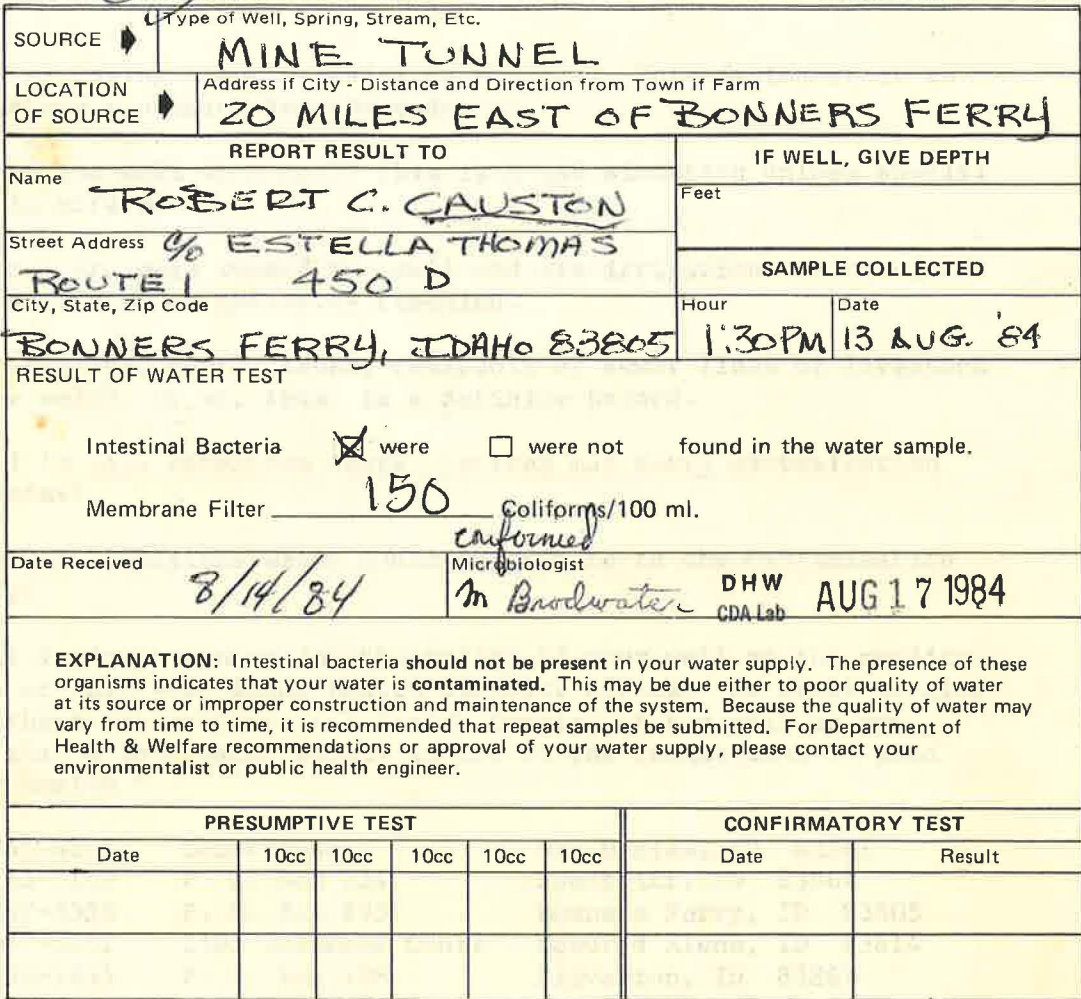 SOURCE
Type of Well, Spring, Stream, Etc.
MINE TUNNEL
LOCATION OF SOURCE
Address if City - Distance and Direction from Town if Farm
20 MILES EAST OF BONNERS FERRY
REPORT RESULT TO
IF WELL, GIVE DEPTH
Name
ROBERT C. CAUSTON
Feet
Street Address
c/o ESTELLA THOMAS
ROUTE 1 450 D
SAMPLE COLLECTED
City, State, Zip Code
BONNERS FERRY, IDAHO 83805
Hour
1:30 PM
Date
13 AUG. '84
RESULT OF WATER TEST
Intestinal Bacteria ☒ were ☐ were not found in the water sample.
Membrane Filter 150 Coliforms/100 ml.
confirmed
Date Received
8/14/84
Microbiologist
M Brodwater
DHW
CDA Lab
AUG 17 1984
EXPLANATION: Intestinal bacteria should not be present in your water supply. The presence of these
organisms indicates that your water is contaminated. This may be due either to poor quality of water
at its source or improper construction and maintenance of the system. Because the quality of water may
vary from time to time, it is recommended that repeat samples be submitted. For Department of
Health & Welfare recommendations or approval of your water supply, please contact your
environmentalist or public health engineer.
PRESUMPTIVE TEST
CONFIRMATORY TEST
Date 10cc 10cc 10cc 10cc 10cc Date Result